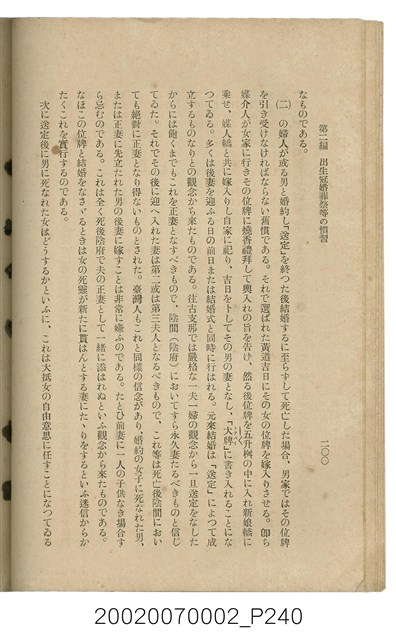 第二編　出生冠婚葬祭等の慣習
二〇〇
なものである。
(二)　の婦人が或る男と婚約し「送定」を終つた後結婚するに至らずして死亡した場合、男家ではその位牌
を引き受けなければならない舊慣である。それで選ばれた黃道吉日にその女の位牌を嫁入りさせる。卽ち
媒介人が女家に行きその位牌に燒香禮拜して輿入れの旨を吿げ、然る後位牌を五升桝の中に入れ新娘轎に
乘せ、媒人轎と共に嫁入りし自家に祀り、吉日を卜してその男の妻となし、「大牌」に書き入れることにな
つてゐる。多くは後妻を迎ふる日の前日または結婚式と同時に行はれる。元來結婚は「送定」によつて成
立するものなりとの觀念から來たものである。往古支那では嚴格な一夫一婦の觀念から一旦送定をなした
からには飽くまでもこれを正妻となすべきもので、陰間(陰府)においてすら永久妻たるべきものと信じ
てゐた。それでその後に迎へ入れた妻は第二或は第三夫人となるべきもので、これ等は死亡後陰間におい
ても絕對に正妻となり得ないものとされた。臺灣人もこれと同樣の信念があり、婚約の女子に死なれた男、
または正妻に先立たれた男の後妻に嫁すことは非常に嫌ふのである。たとひ前妻に一人の子供なき場合す
ら忌むのである。これは全く死後陰府で夫の正妻として一緖に添はれぬといふ觀念から來たものである。
なほこの位牌と結婚をなさゞるときは女の死靈が新たに貰はんとする妻にたゝりをするといふ迷信からか
たくこれを實行するのである。
次に送定後に男に死なれた女はどうするかといふに、これは大抵女の自由意思に任すことになつてゐる
20020070002_P240